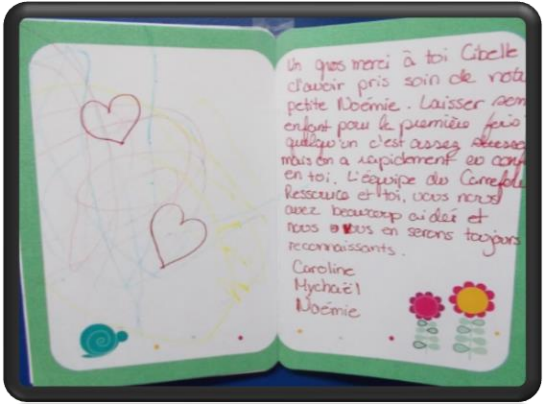 Un gros merci à toi Cibelle
d'avoir pris soin de notre
petite Noémie. Laisser son
enfant pour la première fois
quelqu'un c'est assez
mais on a rapidement eu conf
en toi. L'équipe du Carrefour
Ressource et toi, vous nous
avez beaucoup aidés et
nous vous en serons toujours
reconnaissants.
Caroline
Mychaël
Noémie